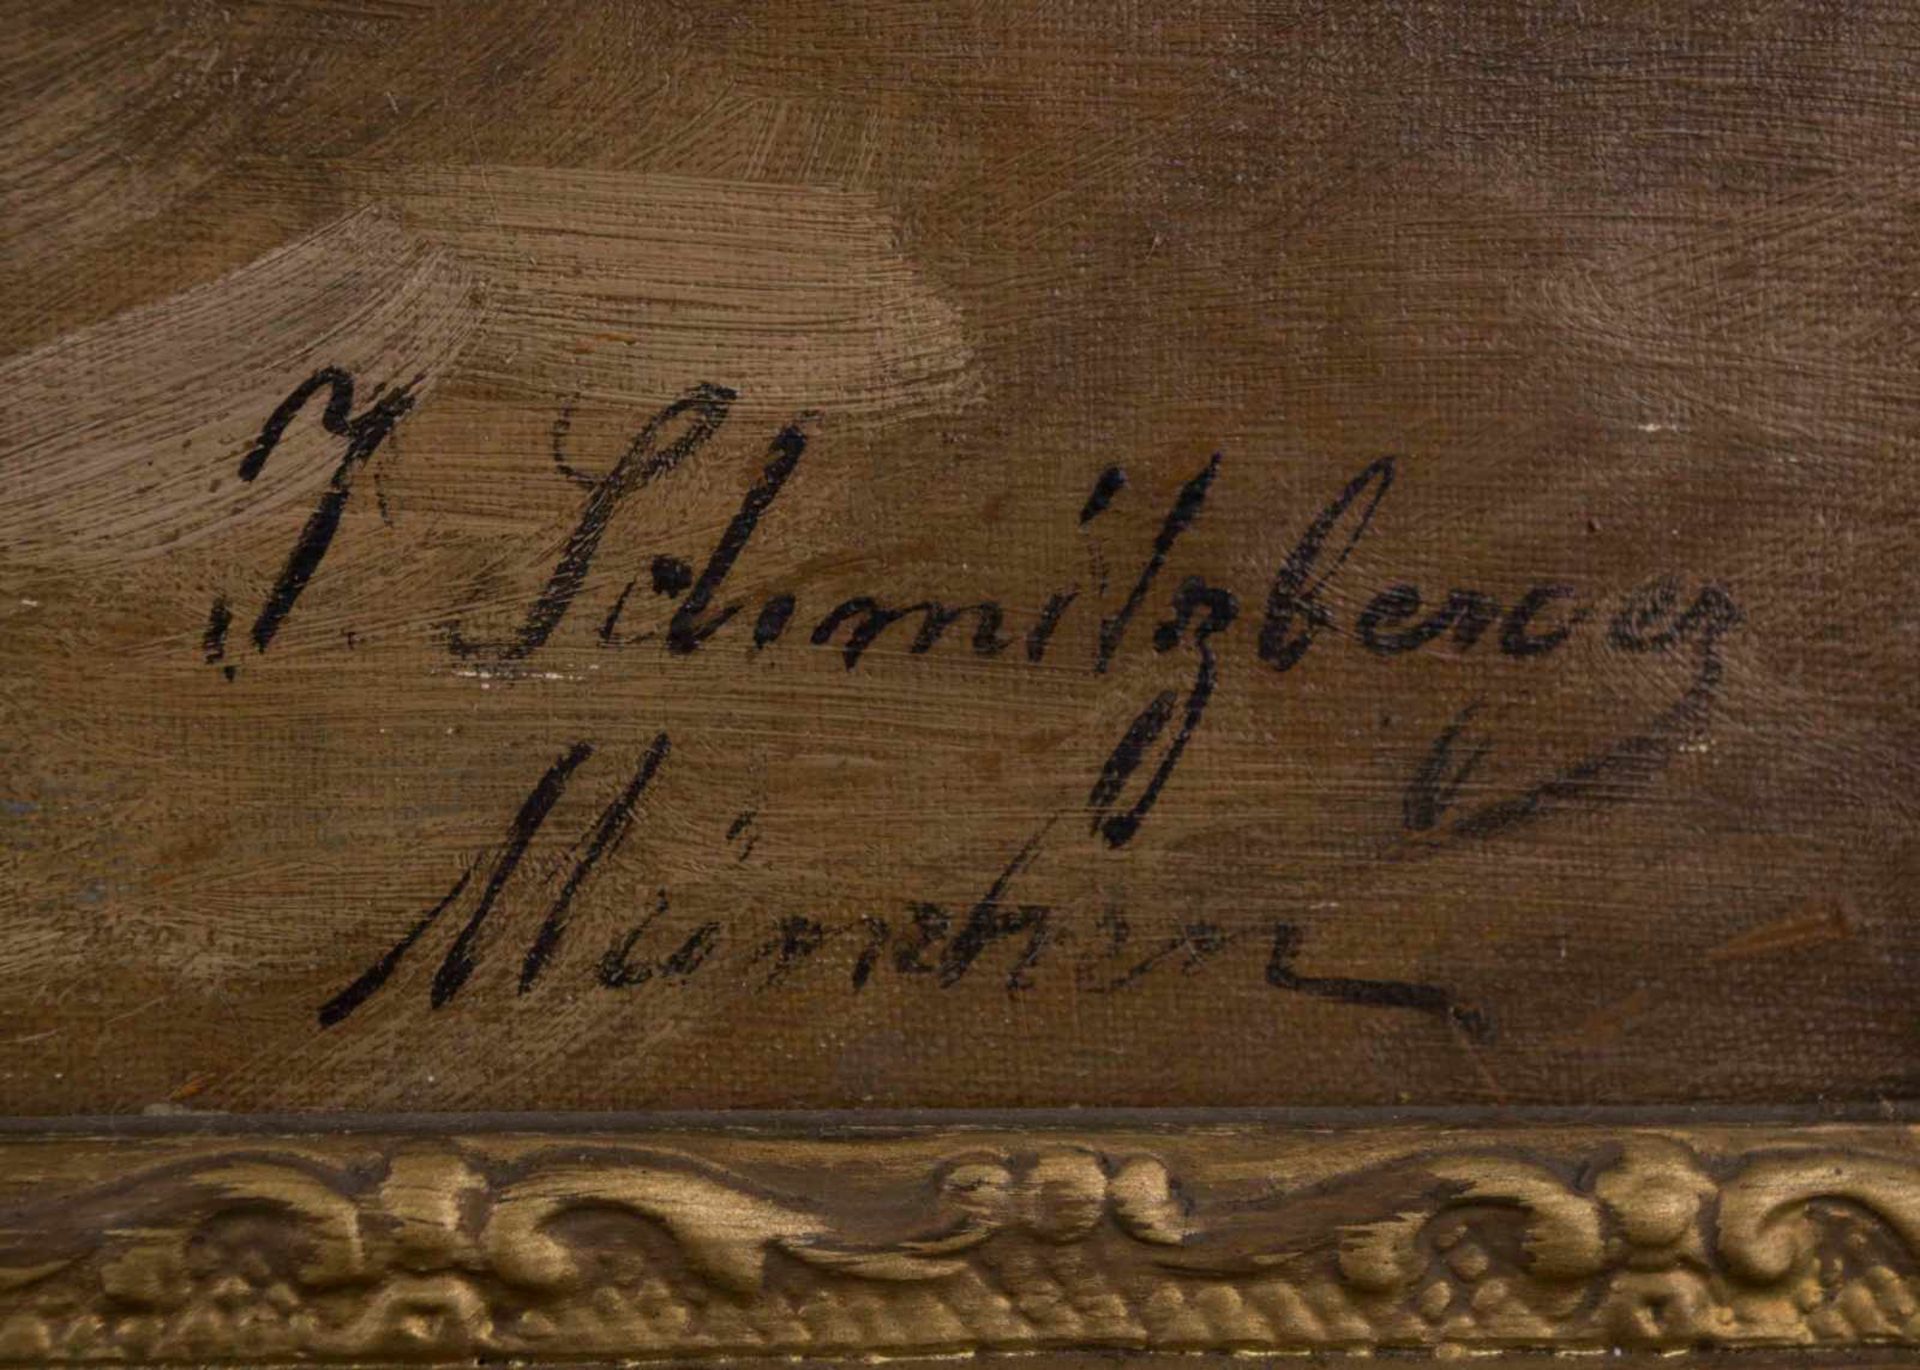 J. Schmitzberger
München